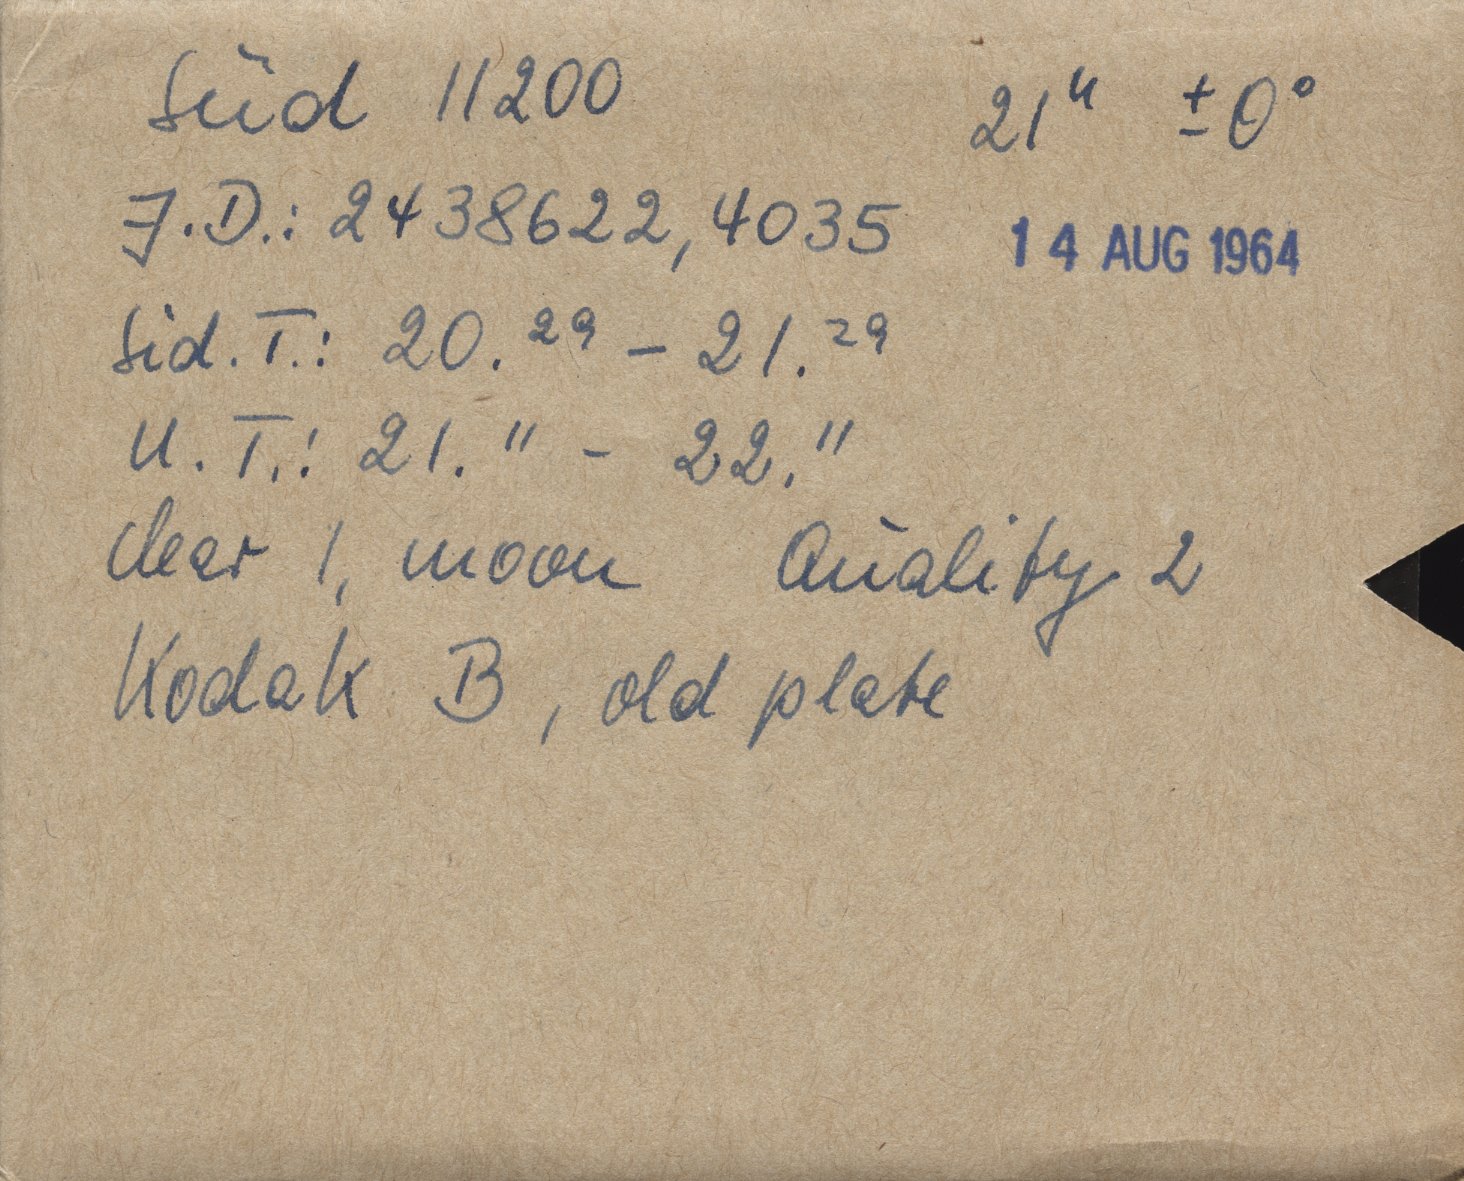 Süd 11200 21ʰ ±0°
J.D.: 2438622,4035 14 AUG 1964
Sid.T.: 20.²⁹ – 21.²⁹
U.T.: 21.¹¹ – 22.¹¹
clear 1, moon Quality 2
Kodak B, old plate